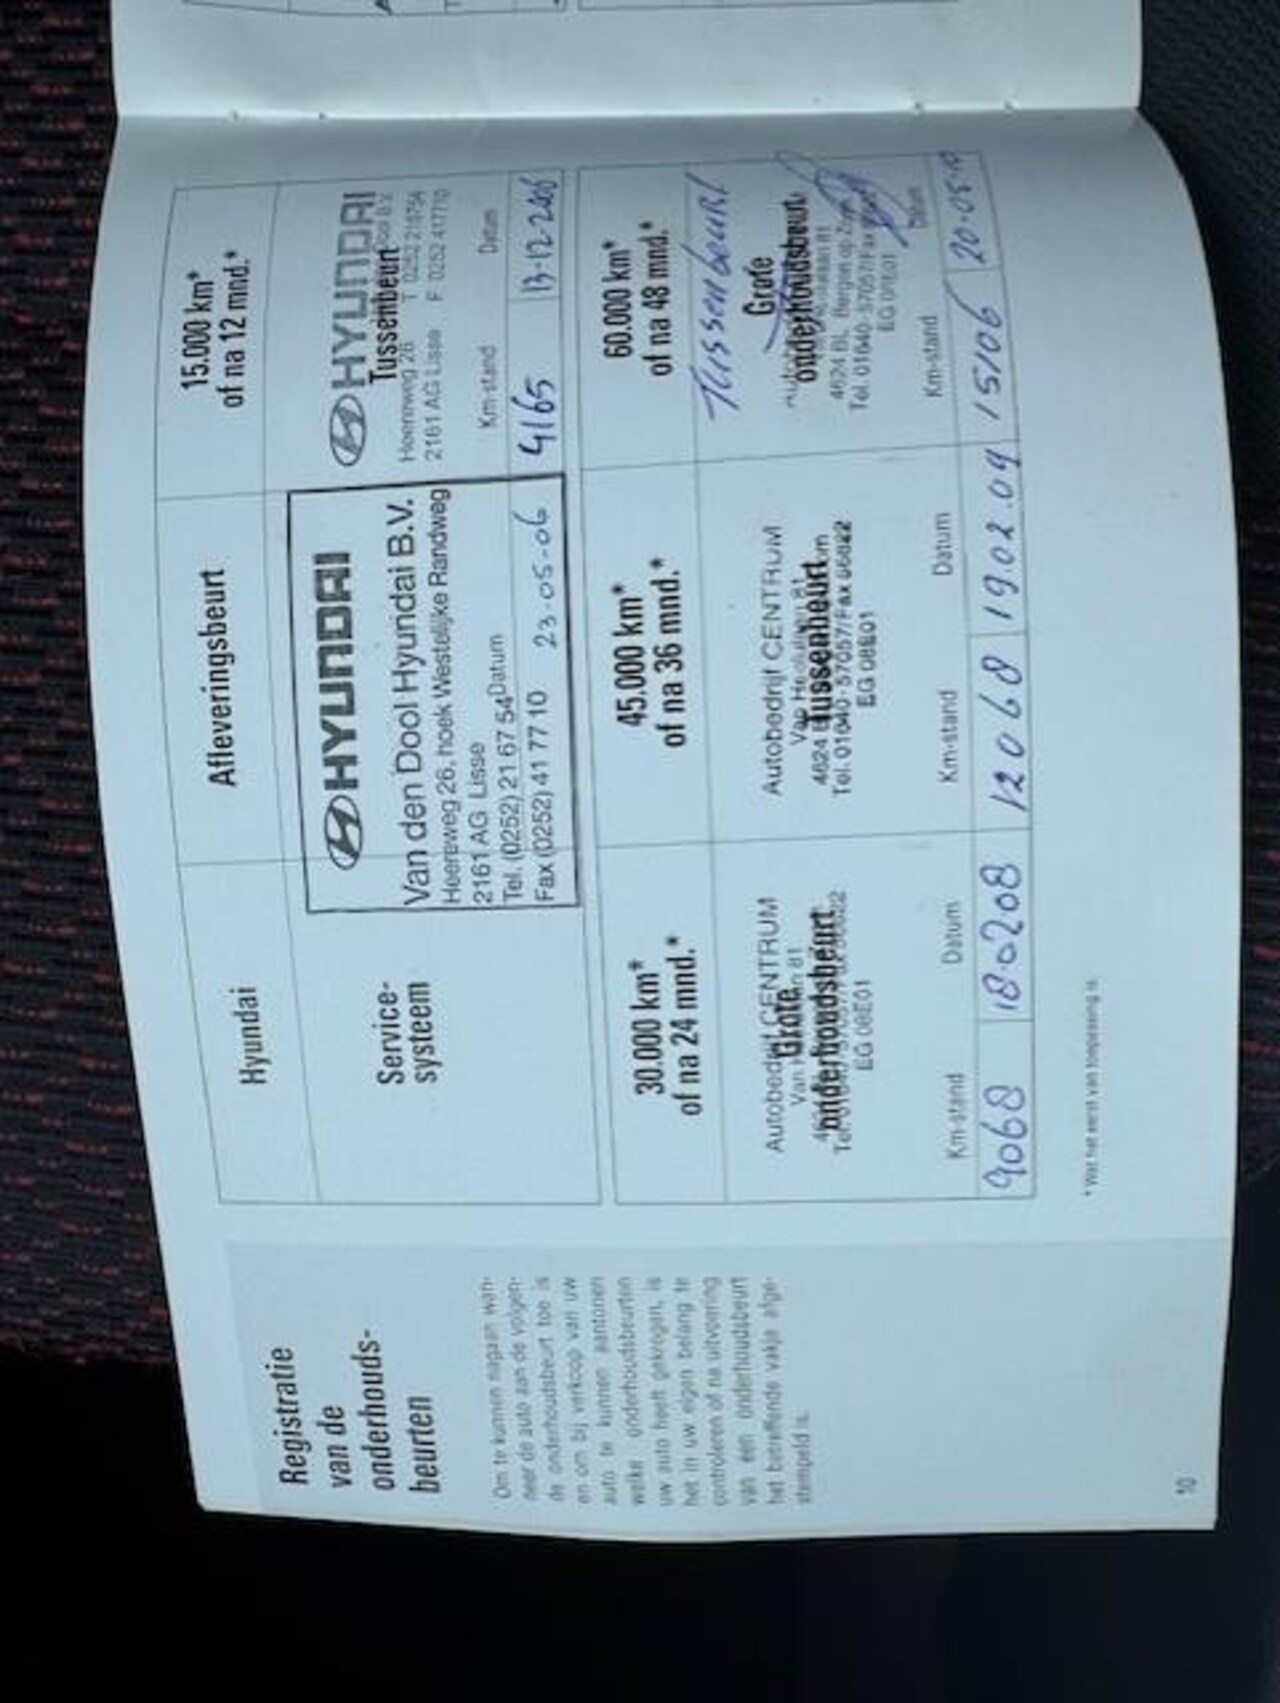 Registratie
van de
onderhouds-
beurten
Om te kunnen nagaan wan-
neer de auto aan de volgen-
de onderhoudsbeurt toe is
en om bij verkoop van uw
auto te kunnen aantonen
welke onderhoudsbeurten
uw auto heeft gekregen, is
het in uw eigen belang te
controleren of na uitvoering
van een onderhoudsbeurt
het betreffende vakje afge-
stempeld is.
10
Hyundai
Service-
systeem
Afleveringsbeurt
HYUNDAI
Van den Dool Hyundai B.V.
Heereweg 26, hoek Westelijke Randweg
2161 AG Lisse
Tel. (0252) 21 67 54 Datum
Fax (0252) 41 77 10 23-05-06
15.000 km*
of na 12 mnd.*
HYUNDAI
Tussenbeurt
Heereweg 26 T 0252 216754
2161 AG Lisse F 0252 417710
Km-stand Datum
4165 13-12-2006
30.000 km*
of na 24 mnd.*
Autobedrijf CENTRUM
Grote
onderhoudsbeurt
EG 08E01
Km-stand Datum
9068 18-0208
45.000 km*
of na 36 mnd.*
Autobedrijf CENTRUM
Tussenbeurt
Tel. 01640-57057/Fax
EG 08E01
Km-stand Datum
12068 19.02.09
60.000 km*
of na 48 mnd.*
Tussenbeurt
Grote
onderhoudsbeurt
4624 BL Bergen op Zoom
Tel. 01640-57057/Fax
EG 08E01
Km-stand Datum
15106 20-05-10
* Wat het eerst van toepassing is.